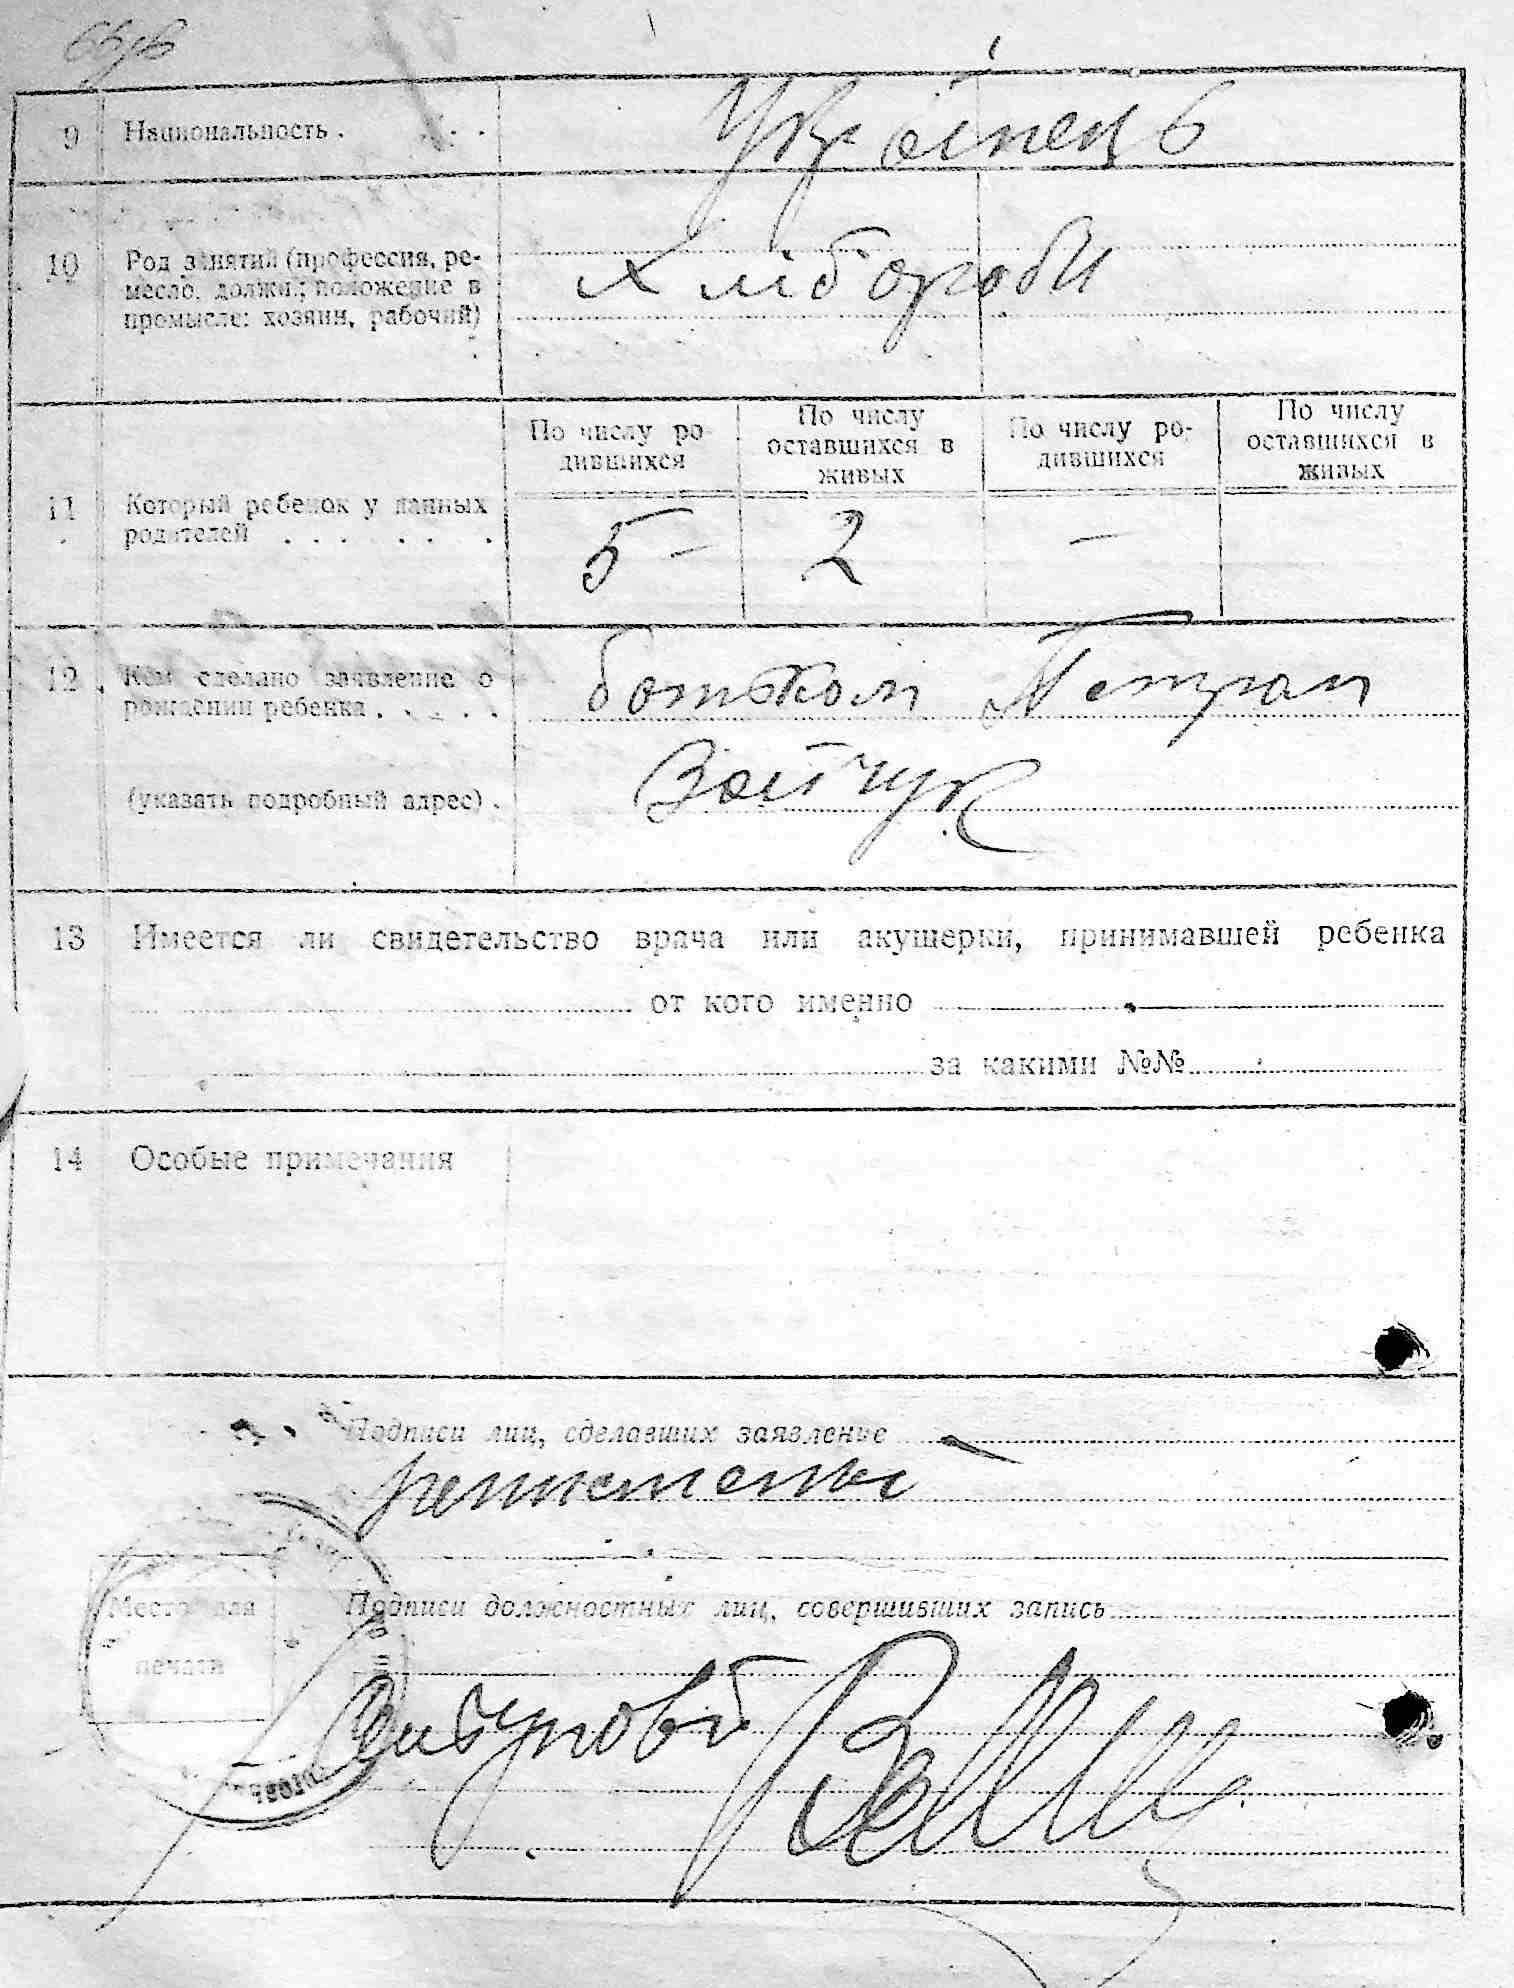 9 Национальность . . . . Українець
10 Род занятий (профессия, ре-
месло, должн.; положение в
промысле: хозяин, рабочий)
Хлібороби
По числу ро-
дившихся
По числу
оставшихся в
живых
По числу ро-
дившихся
По числу
оставшихся в
живых
11 Который ребенок у данных
родителей . . . . . . .
5 – 2 –
12 Кем сделано заявление о
рождении ребенка . . . . .
батьком Петром
(указать подробный адрес) .
Войтчук
13 Имеется ли свидетельство врача или акушерки, принимавшей ребенка
от кого именно
за какими №№
14 Особые примечания
Подписи лиц, сделавших заявление
Место для
печати
Подписи должностных лиц, совершивших запись